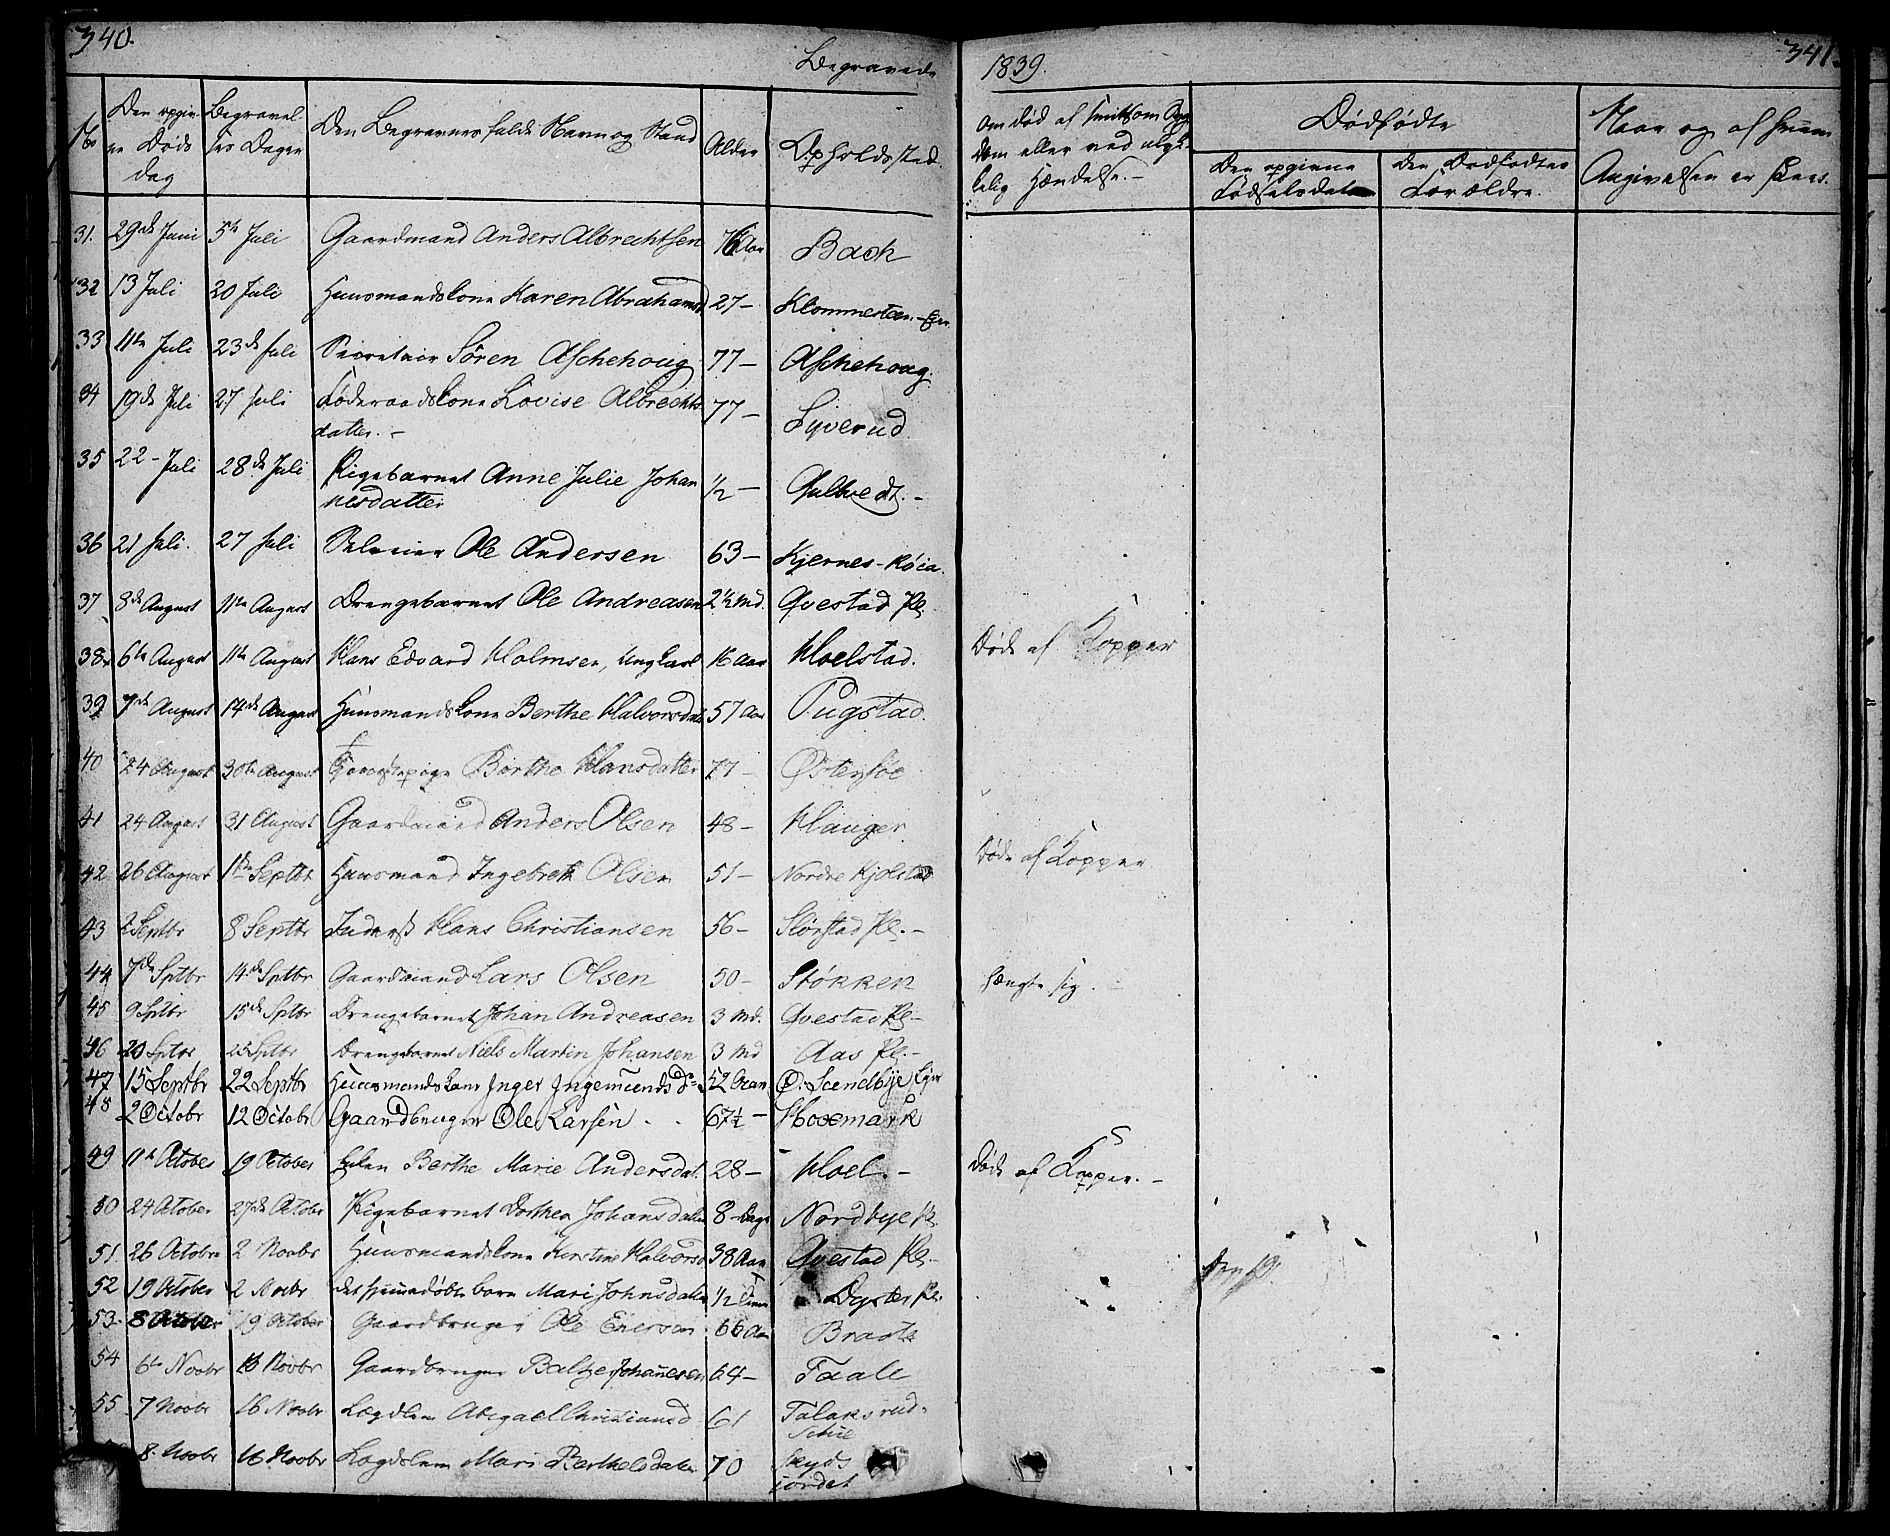 340.
Begravede
1839.
341.
No
Den opgiv-
ne Døds
dag
Begravel-
ses Dagen
Den Begravenes fulde Navn og Stand
Alder
Opholdssted
Om død af smitsom Syg
dom eller ved ulyk-
kelig Hændelse.-
Dødfødte
Den opgivne
Fødselsdato
Den Dødfødtes
Forældre.
Naar og af hvem
Angivelsen er skeet.
31. 29de Juni 5te Juli Gaardmand Anders Albrechtsen 76 Aar Bach
32 13 Juli 20 Juli Huusmandskone Karen Abrahamsd 27- Klommesteen
33 11te Juli 23de Juli Secretair Sören Aschehoug 77- Aschehoug.
34 19de Juli 27 Juli Föderaadskone Lovise Albrechts
datter.- 77- Lyverud
35 22- Juli 28de Juli Pigebarnet Anne Julie Johan
nesdatter ½- Gultvedt.-
36 21 Juli. 27 Juli Selveier Ole Andersen 63- Kjernes-
37 8de August 11te August Drengebarnet Ole Andreasen 2½ Md. Qvestad Pl.
38. 6te August 11te August Hans Edvard Holmsen, Ungkarl 16 Aar Hoelstad. Døde af Kopper
39 7de August 14de August Huusmandskone Berthe Halvorsdatt 57 Aar Pugstad.
40 24 August 30te August Berthe Hansdatter 77- Østensøe
41 24 August 31 August Gaardmand Anders Olsen 48- Hauger
42 26 August 1te Septbr Huusmand Ingebreth Olsen 51- Nordre Kjølstad Døde af Kopper
43 2 Septbr 8 Septbr Inderst Hans Christiansen 56- Slørstad Pl.-
44 7de Sptbr 14de Sptbr Gaardmand Lars Olsen 50- Støkken hængte sig.-
45 9 Sptbr 15de Sptbr Drengebarnet Johan Andreasen 3 Md. Qvestad Pl-
46 20 Sptbr 25 Sptbr Drengebarnet Niels Martin Johansen 3 Md Aas Pl.-
47 15 Septbr 22 Septbr Huusmandskone Inger Ingemundsdr 52 Aar
48 2 Octobr 12 Octobr Gaardbruger Ole Larsen 67½- Hoxemark
49 11te October 19 October Berthe Marie Andersdat. 28- Hoel.- Døde af Kopper.-
50 24 October 27de Octobr Pigebarnet Dorthea Johansdatter 8 Dage Nordbye Pl.
51. 26 Octobr 2 Novbr Huusmandskone Kirstine Halvorsd 38 Aar Qvestad Pl.-
52 19 October 2 Novbr det hjemmedøbte barn Mari Johnsdatter ½ Time Dyster Pl.
53. 8 October 19 October Gaardbruger Ole Enersen 66 Aar Braate
54 6te Novbr 13 Novbr Gaardbruger Baltze Johannesen 64- Faale
55 7 Novbr 16 Novbr Lægdslem Abegael Christiansd 61 Talaksrud-
8. Novbr 16 Novbr Lægdslem Mari Berthelsdatter 70 Skyds
jordet